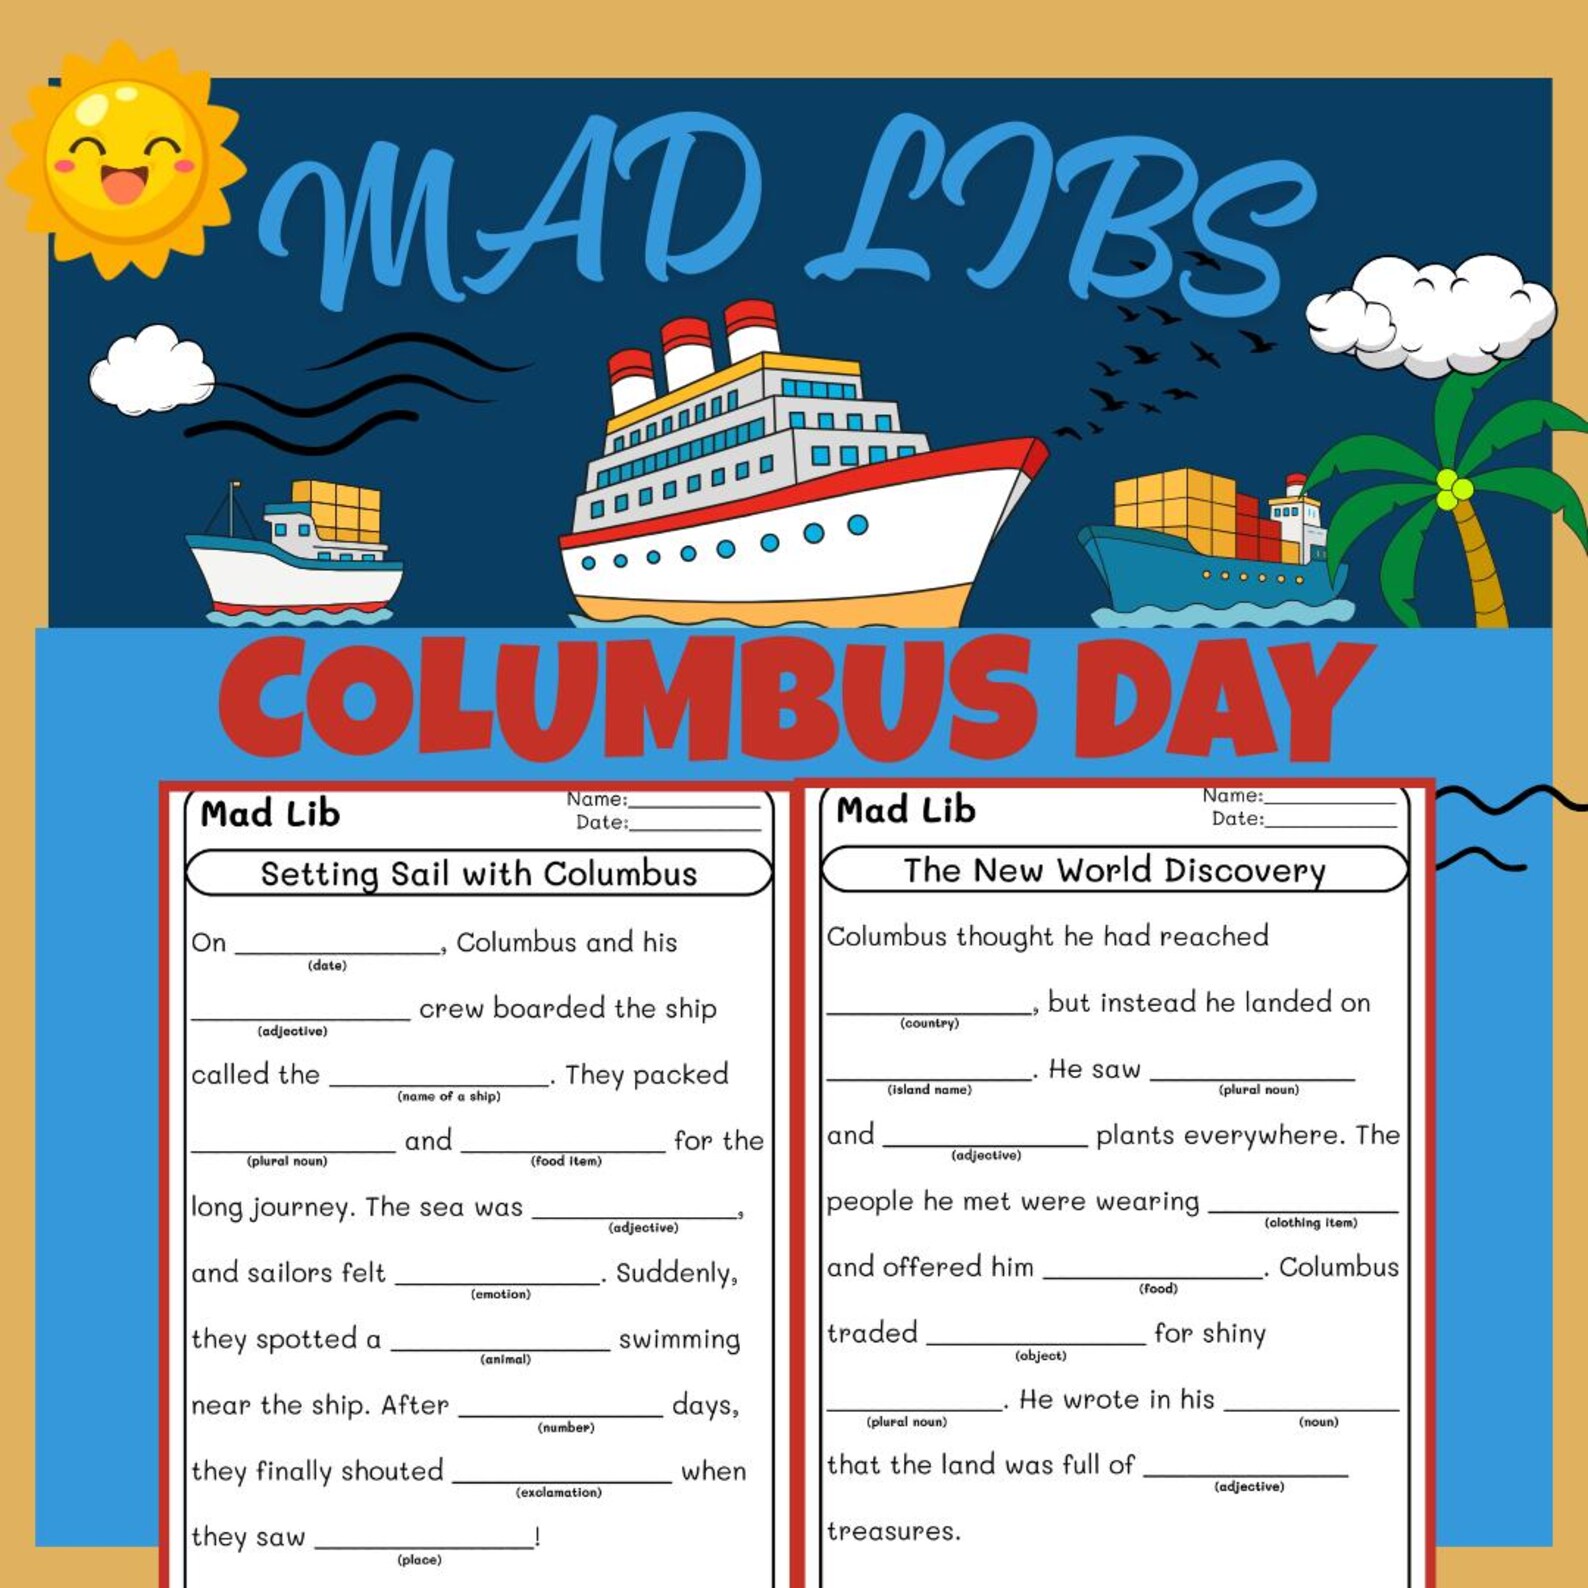 MAD LIBS
COLUMBUS DAY
Mad Lib
Name:____________
Date:____________
Setting Sail with Columbus
On ______________, Columbus and his
(date)
_______________ crew boarded the ship
(adjective)
called the _______________. They packed
(name of a ship)
______________ and ______________ for the
(plural noun) (food item)
long journey. The sea was ______________,
(adjective)
and sailors felt ______________. Suddenly,
(emotion)
they spotted a _______________ swimming
(animal)
near the ship. After ______________ days,
(number)
they finally shouted _______________ when
(exclamation)
they saw _______________!
(place)
Mad Lib
Name:____________
Date:____________
The New World Discovery
Columbus thought he had reached
______________, but instead he landed on
(country)
______________. He saw ______________
(island name) (plural noun)
and ______________ plants everywhere. The
(adjective)
people he met were wearing _____________
(clothing item)
and offered him _______________. Columbus
(food)
traded _______________ for shiny
(object)
____________. He wrote in his ____________
(plural noun) (noun)
that the land was full of ______________
(adjective)
treasures.